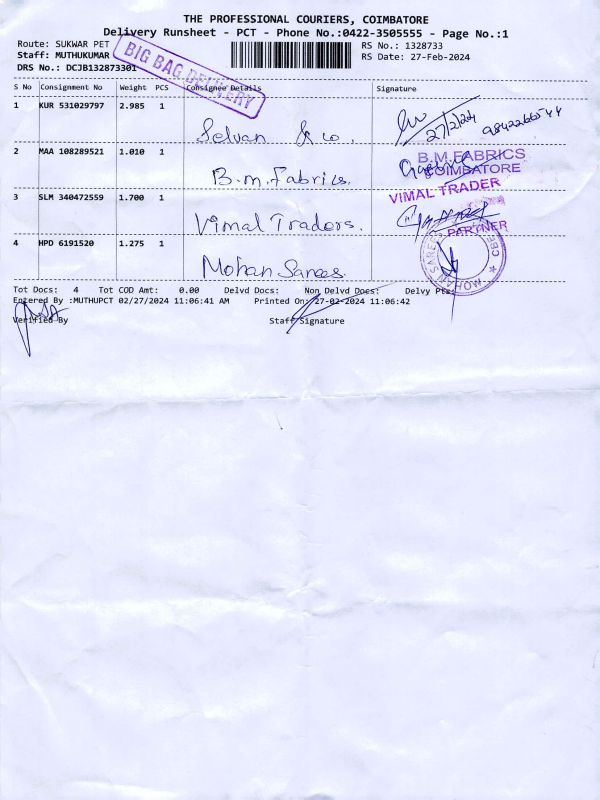 THE PROFESSIONAL COURIERS, COIMBATORE
Delivery Runsheet - PCT - Phone No.:0422-3505555 - Page No.:1
Route: SUKWAR PET
RS No.: 1328733
Staff: MUTHUKUMAR
RS Date: 27-Feb-2024
DRS No.: DCJB132873301
BIG BAG DELIVERY
S No Consignment No Weight PCS Consignee Details Signature
1 KUR 531029797 2.985 1
Selvan & Co.
27/2/24
2 MAA 108289521 1.010 1
B.m. Fabrics.
B.M.FABRICS
COIMBATORE
3 SLM 340472559 1.700 1
Vimal Traders.
VIMAL TRADER
PARTNER
4 HPD 6191520 1.275 1
Mohan Sarees.
MOHAN SAREES CBE
Tot Docs: 4 Tot COD Amt: 0.00 Delvd Docs: Non Delvd Docs: Delvy Pts:
Entered By :MUTHUPCT 02/27/2024 11:06:41 AM Printed On: 27-02-2024 11:06:42
Verified By Staff Signature